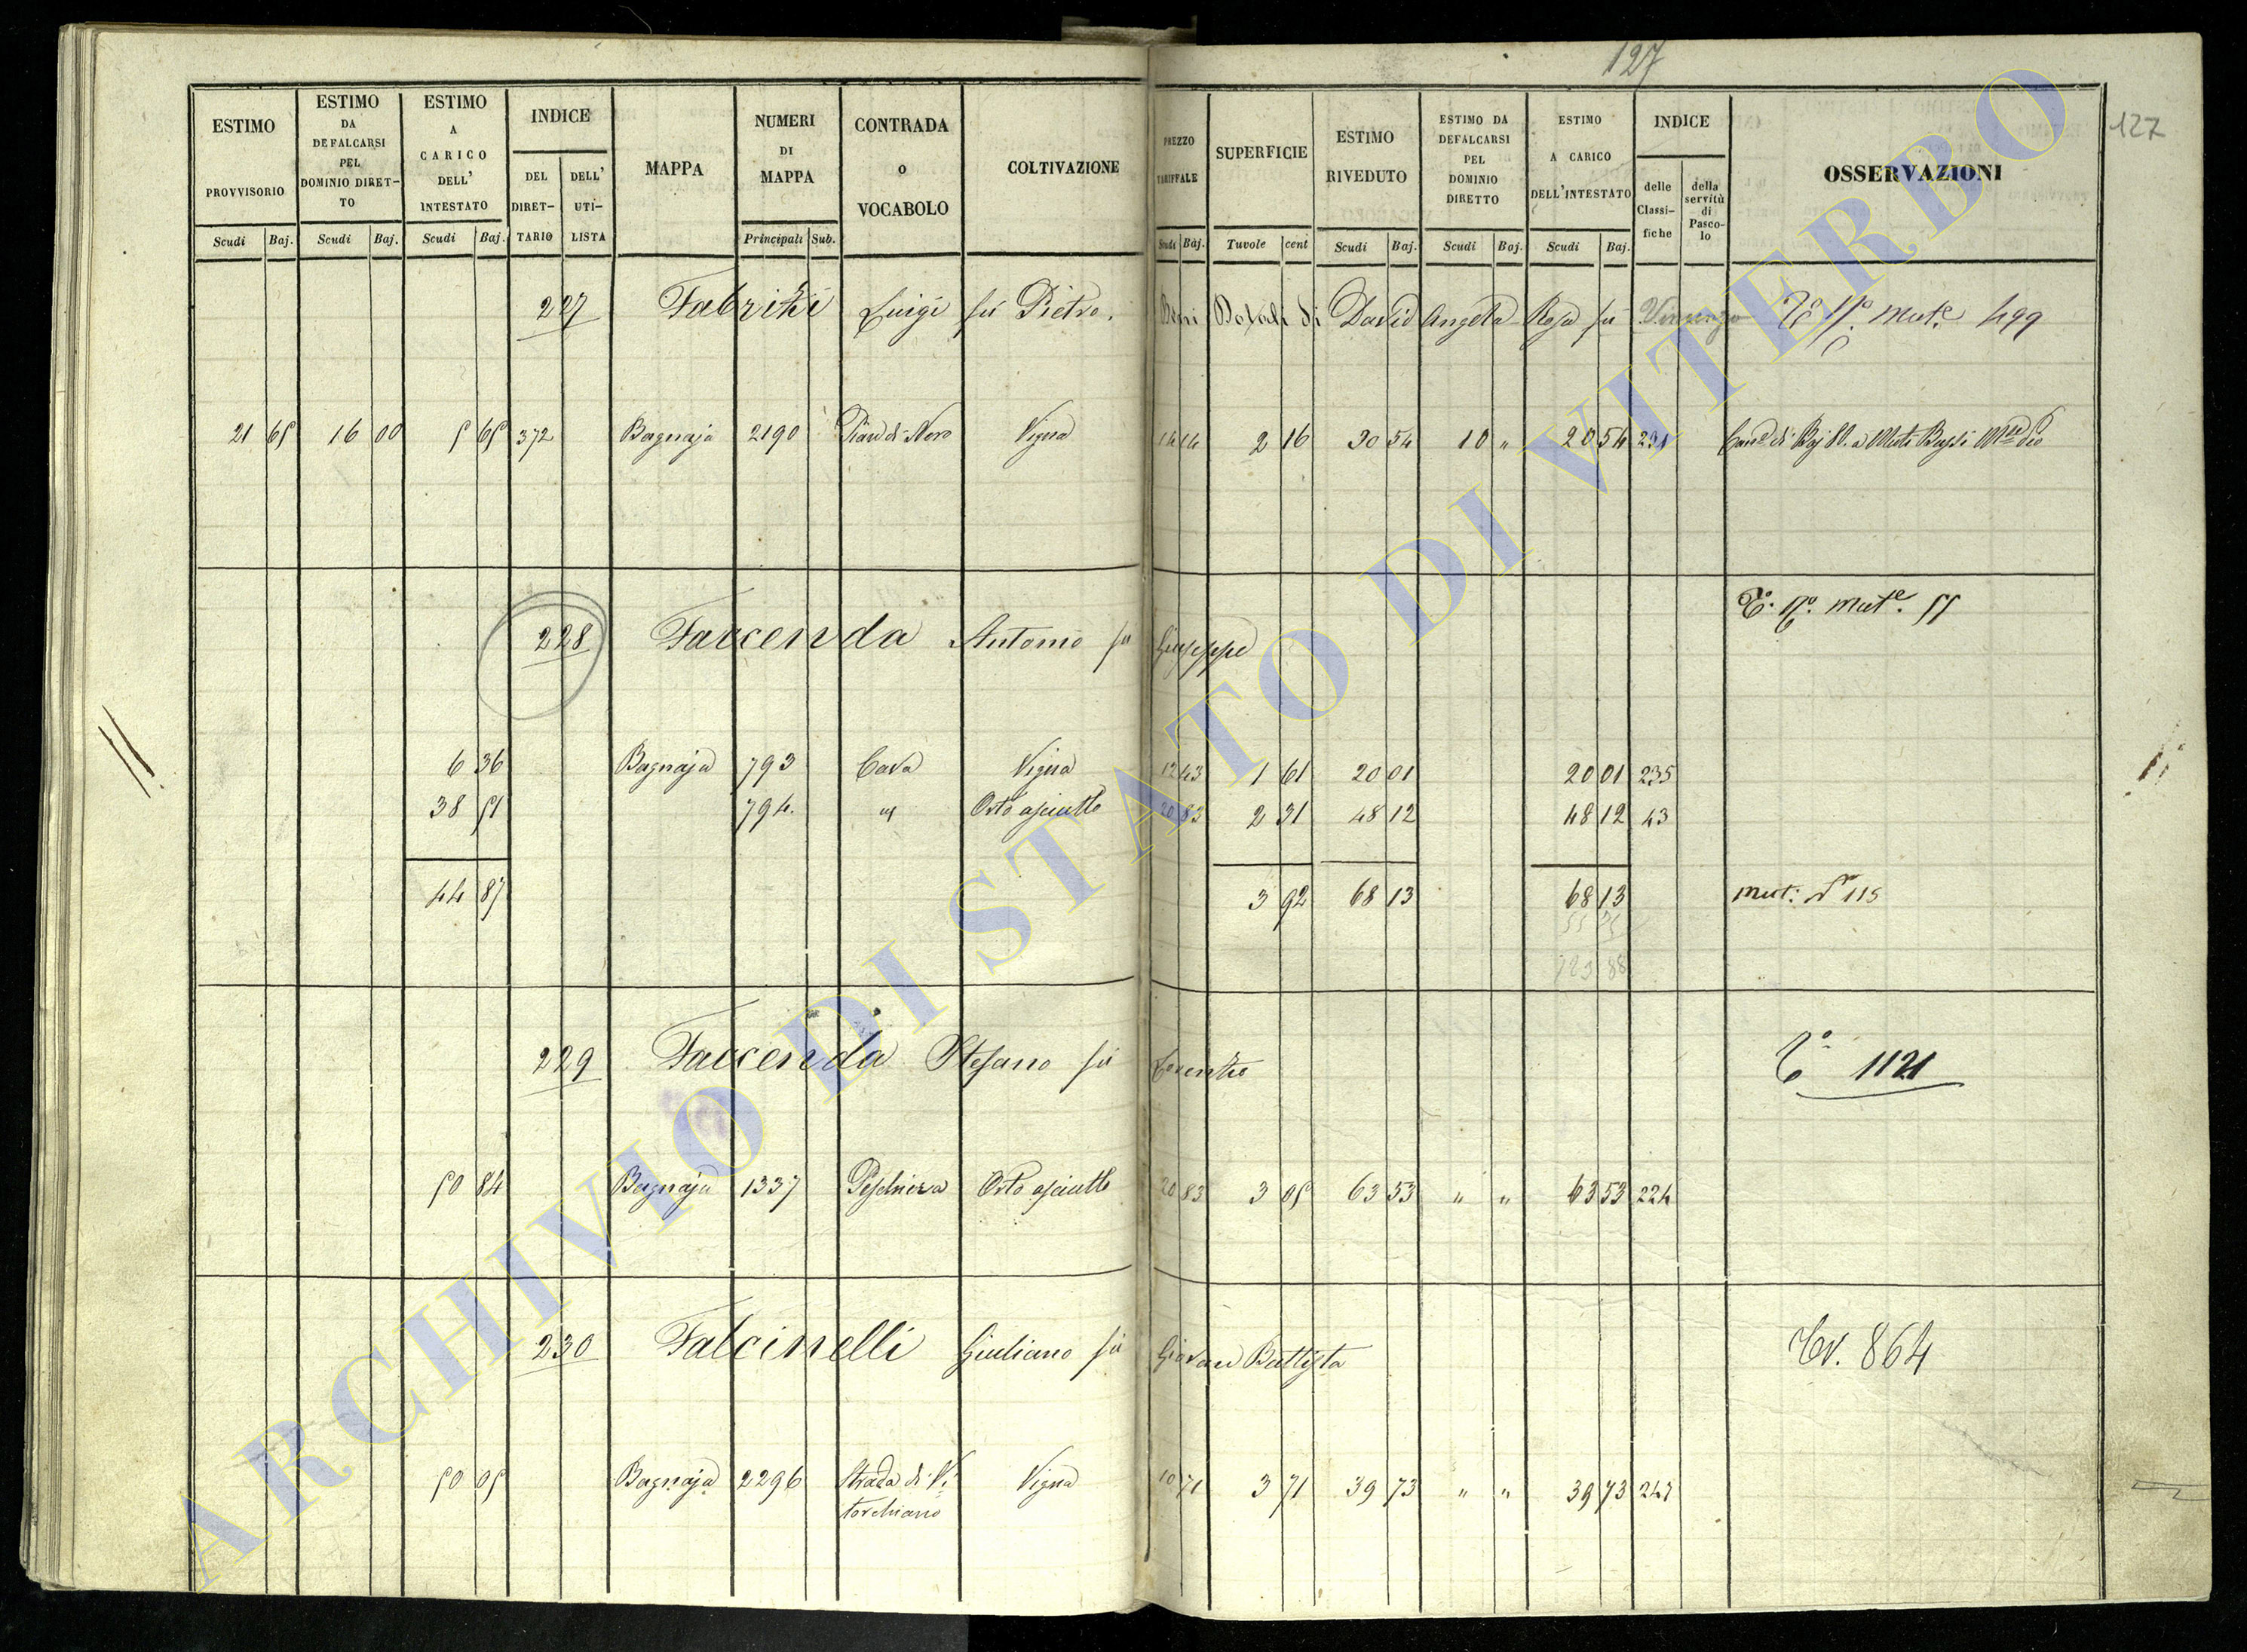 127
127
ESTIMO PROVVISORIO
ESTIMO DA DEFALCARSI PEL DOMINIO DIRET-TO
ESTIMO A CARICO DELL' INTESTATO
INDICE
DEL DIRET-TARIO
DELL' UTI-LISTA
MAPPA
NUMERI DI MAPPA
CONTRADA o VOCABOLO
COLTIVAZIONE
PREZZO TARIFFALE
SUPERFICIE
ESTIMO RIVEDUTO
ESTIMO DA DEFALCARSI PEL DOMINIO DIRETTO
ESTIMO A CARICO DELL'INTESTATO
INDICE
delle Classi-fiche
della servitù di Pasco-lo
OSSERVAZIONI
Scudi Baj. Scudi Baj. Scudi Baj. Principali Sub. Scudi Baj. Tavole cent Scudi Baj. Scudi Baj. Scudi Baj.
227 Fabrizi Luigi fù Pietro. Beni Dotali di David Angela Rosa fù Vincenzo Mut.e 499
21 65 16 00 5 65 372 Bagnaja 2190 Pian di Nero Vigna 14 14 2 16 30 54 10 " 20 54 231
T.o N.o Mut.e 55
228 Faccenda Antonio fu Giuseppe
6 36 Bagnaja 793 Cava Vigna 12 43 1 61 20 01 20 01 235
38 51 794. " Orto asciutto 20 83 2 31 48 12 48 12 43
44 87 3 92 68 13 68 13 Mut: N 115
229 Faccenda Stefano fù T.o 1121
50 84 Bagnaja 1337 Peschiera Orto asciutto 20 83 3 05 63 53 " " 63 53 224
230 Falcinelli Giuliano fù Giovan Battista 864
50 05 Bagnaja 2296 Strada di Vi= Vigna 10 71 3 71 39 73 " " 39 73 247
torchiano
ARCHIVIO DI STATO DI VITERBO